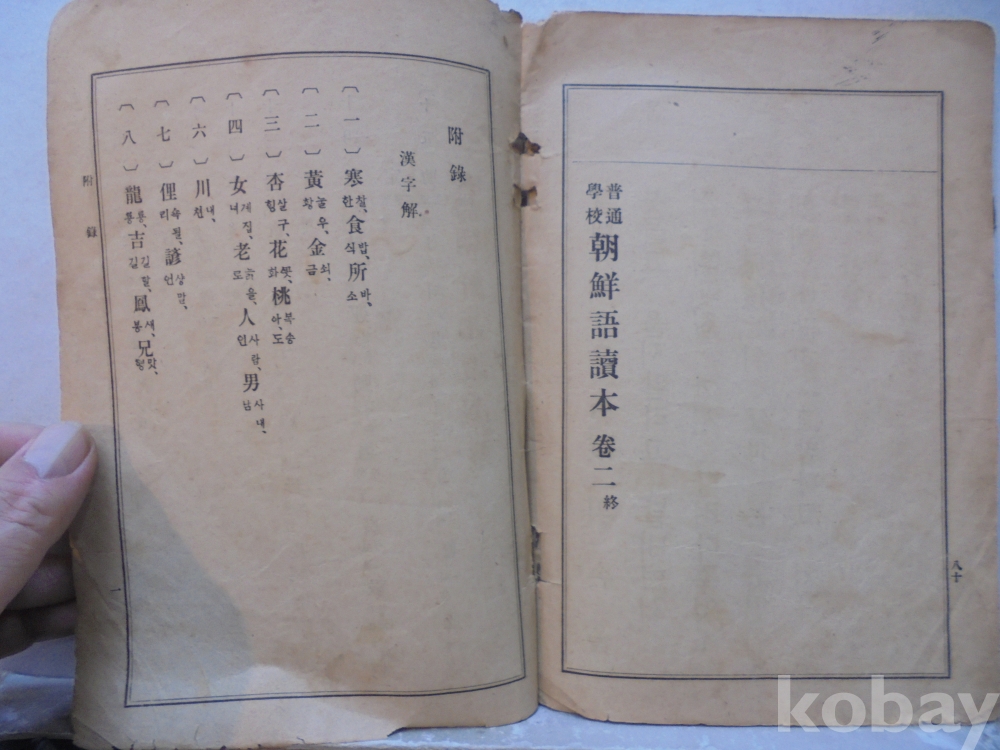 普通學校 朝鮮語讀本 卷二 終
八十
附錄
漢字解
〔一〕寒 찰、한 食 밥、식 所 바、소
〔二〕黃 눌우、황 金 쇠、금
〔三〕杏 살구、힝 花 꼿、화 桃 복송아、도
〔四〕女 계집、녀 老 늙을、로 人 사람、인 男 사내、남
〔六〕川 내、천
〔七〕俚 속될、리 諺 상말、언
〔八〕龍 룡、룡 吉 길할、길 鳳 새、봉 兄 맛、형
附錄
一
kobay